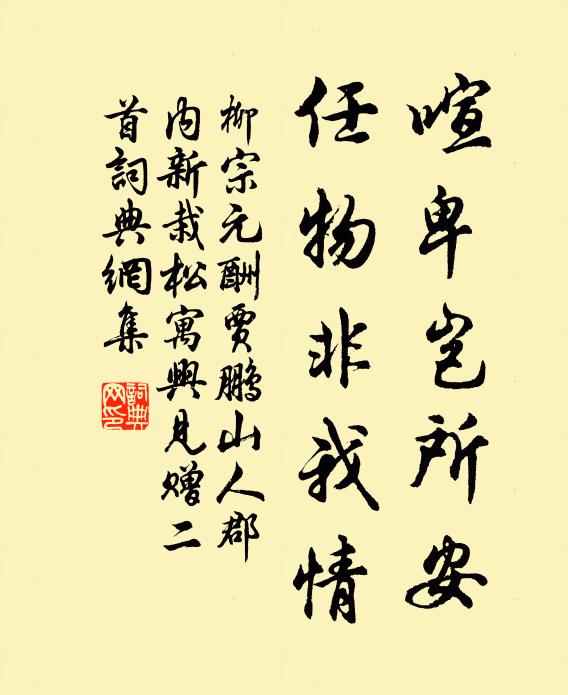 喧卑豈所安
任物非我情
柳宗元酬賈鵬山人郡
内新栽松寓興見贈二
首詞典網集
詞典
网印